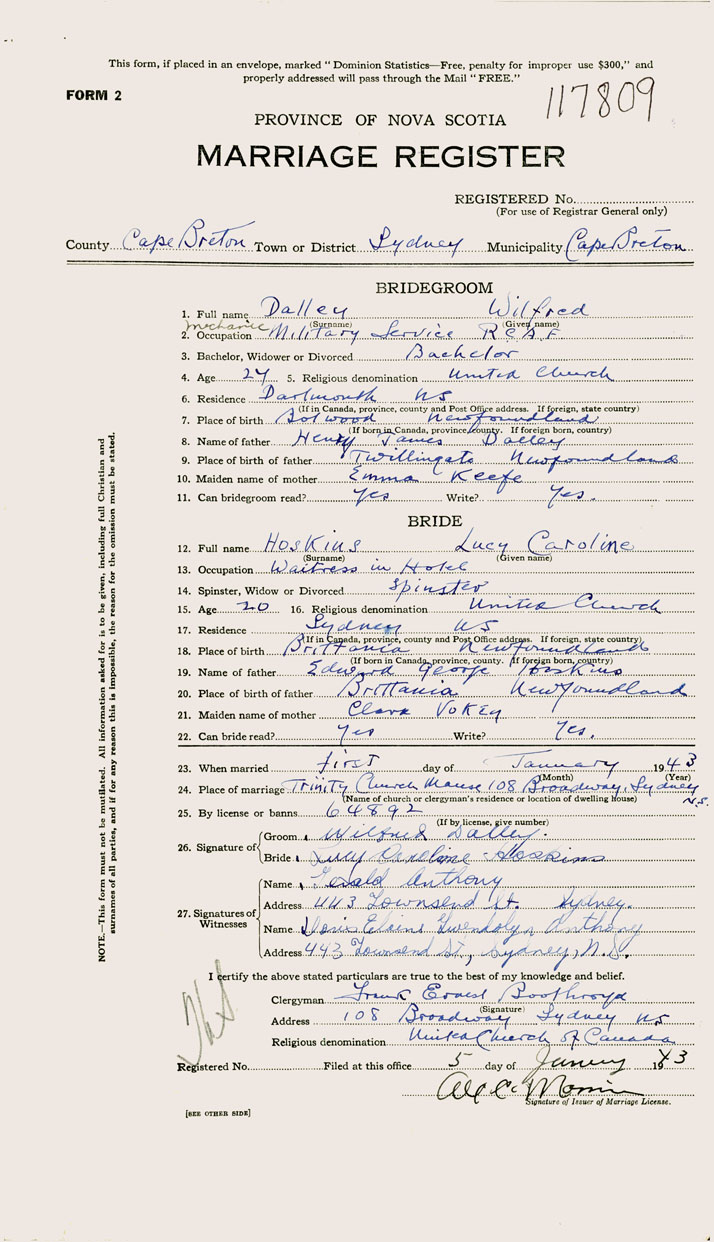 This form, if placed in an envelope, marked "Dominion Statistics—Free, penalty for improper use $300," and
properly addressed will pass through the Mail "FREE."
FORM 2
117809
PROVINCE OF NOVA SCOTIA
MARRIAGE REGISTER
REGISTERED No.
(For use of Registrar General only)
County Cape Breton Town or District Sydney Municipality Cape Breton
BRIDEGROOM
1. Full name Dalley Wilfred
(Surname) (Given name)
mechanic
2. Occupation Military Service R C A F
3. Bachelor, Widower or Divorced Bachelor
4. Age 24 5. Religious denomination United Church
6. Residence Dartmouth NS
(If in Canada, province, county and Post Office address. If foreign, state country)
7. Place of birth Botwood Newfoundland
(If born in Canada, province, county. If foreign born, country)
8. Name of father Henry James Dalley
9. Place of birth of father Twillingate Newfoundland
10. Maiden name of mother Emma Keefe
11. Can bridegroom read? Yes Write? Yes.
BRIDE
12. Full name Hoskins Lucy Caroline
(Surname) (Given name)
13. Occupation Waitress in Hotel
14. Spinster, Widow or Divorced Spinster
15. Age 20 16. Religious denomination United Church
17. Residence Sydney NS
(If in Canada, province, county and Post Office address. If foreign, state country)
18. Place of birth Brittania Newfoundland
(If born in Canada, province, county. If foreign born, country)
19. Name of father Edward George Hoskins
20. Place of birth of father Brittania Newfoundland
21. Maiden name of mother Clara Vokey
22. Can bride read? Yes Write? Yes.
23. When married first day of January 1943
(Month) (Year)
24. Place of marriage Trinity Church Manse 108 Broadway, Sydney N.S.
(Name of church or clergyman's residence or location of dwelling house)
25. By license or banns 64892
(If by license, give number)
26. Signature of Groom Wilfred Dalley.
Bride Lucy Caroline Hoskins
27. Signatures of Witnesses
Name Gerald Anthony
Address 443 Townsend St. Sydney.
Name Doris Elains Gwendolyn Anthony
Address 443 Townsend St., Sydney, N.S.
I certify the above stated particulars are true to the best of my knowledge and belief.
Clergyman Frank Ernest Boothroyd
(Signature)
Address 108 Broadway Sydney NS
Religious denomination United Church of Canada
Registered No. Filed at this office 5 day of January 1943
Signature of Issuer of Marriage License.
[SEE OTHER SIDE]
NOTE.—This form must not be mutilated. All information asked for is to be given, including full Christian and
surnames of all parties, and if for any reason this is impossible, the reason for the omission must be stated.